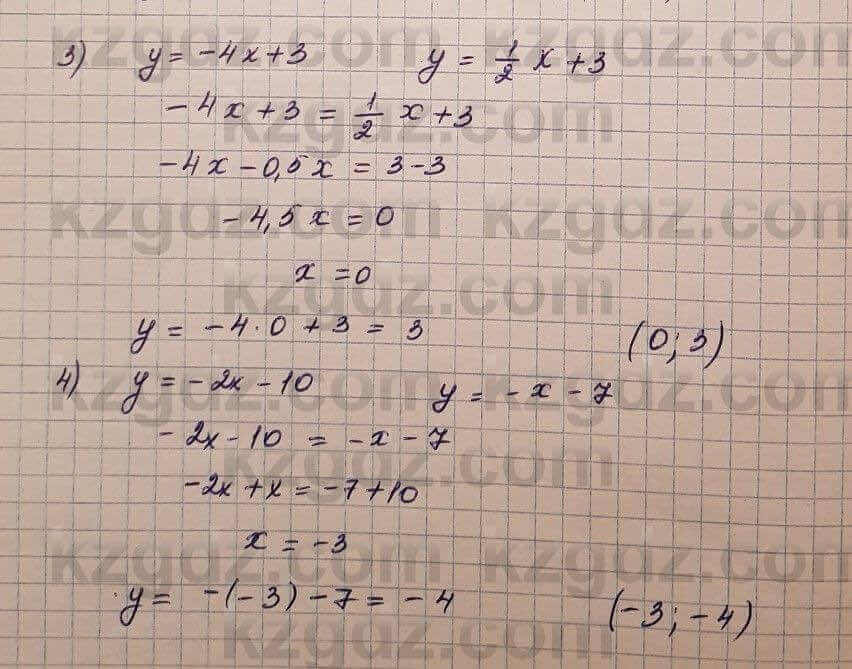 3) y = -4x+3 y = 1/2 x + 3
-4x + 3 = 1/2 x+3
-4x - 0,5x = 3-3
-4,5x = 0
x = 0
y = -4·0 + 3 = 3 (0; 3)
4) y = -2x - 10 y = -x - 7
-2x - 10 = -x - 7
-2x + x = -7+10
x = -3
y = -(-3) - 7 = -4 (-3; -4)
kzgdz.com